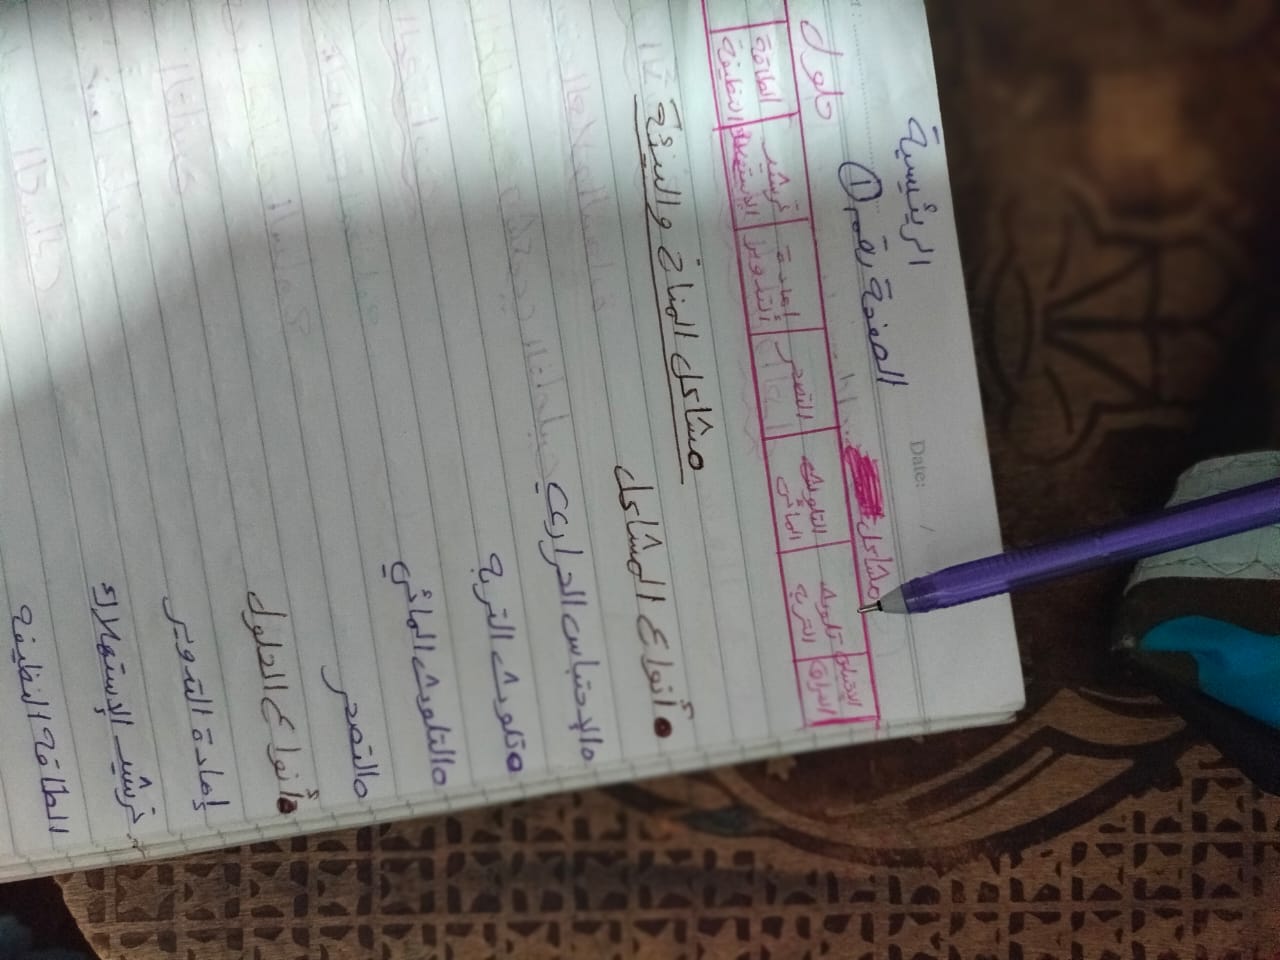 الرئيسية
الصفحة رقم ①
Date: /
مشاكل
حلول
الاحتباس الحراري
تلوث التربة
التلوث المائي
التصحر
إعادة التدوير
ترشيد الإستهلاك
الطاقة النظيفة
مشاكل المناخ والبيئة
أنواع المشاكل
الإحتباس الحراري
تلوث التربة
التلوث المائي
التصحر
أنواع الحلول
إعادة التدوير
ترشيد الإستهلاك
الطاقة النظيفة